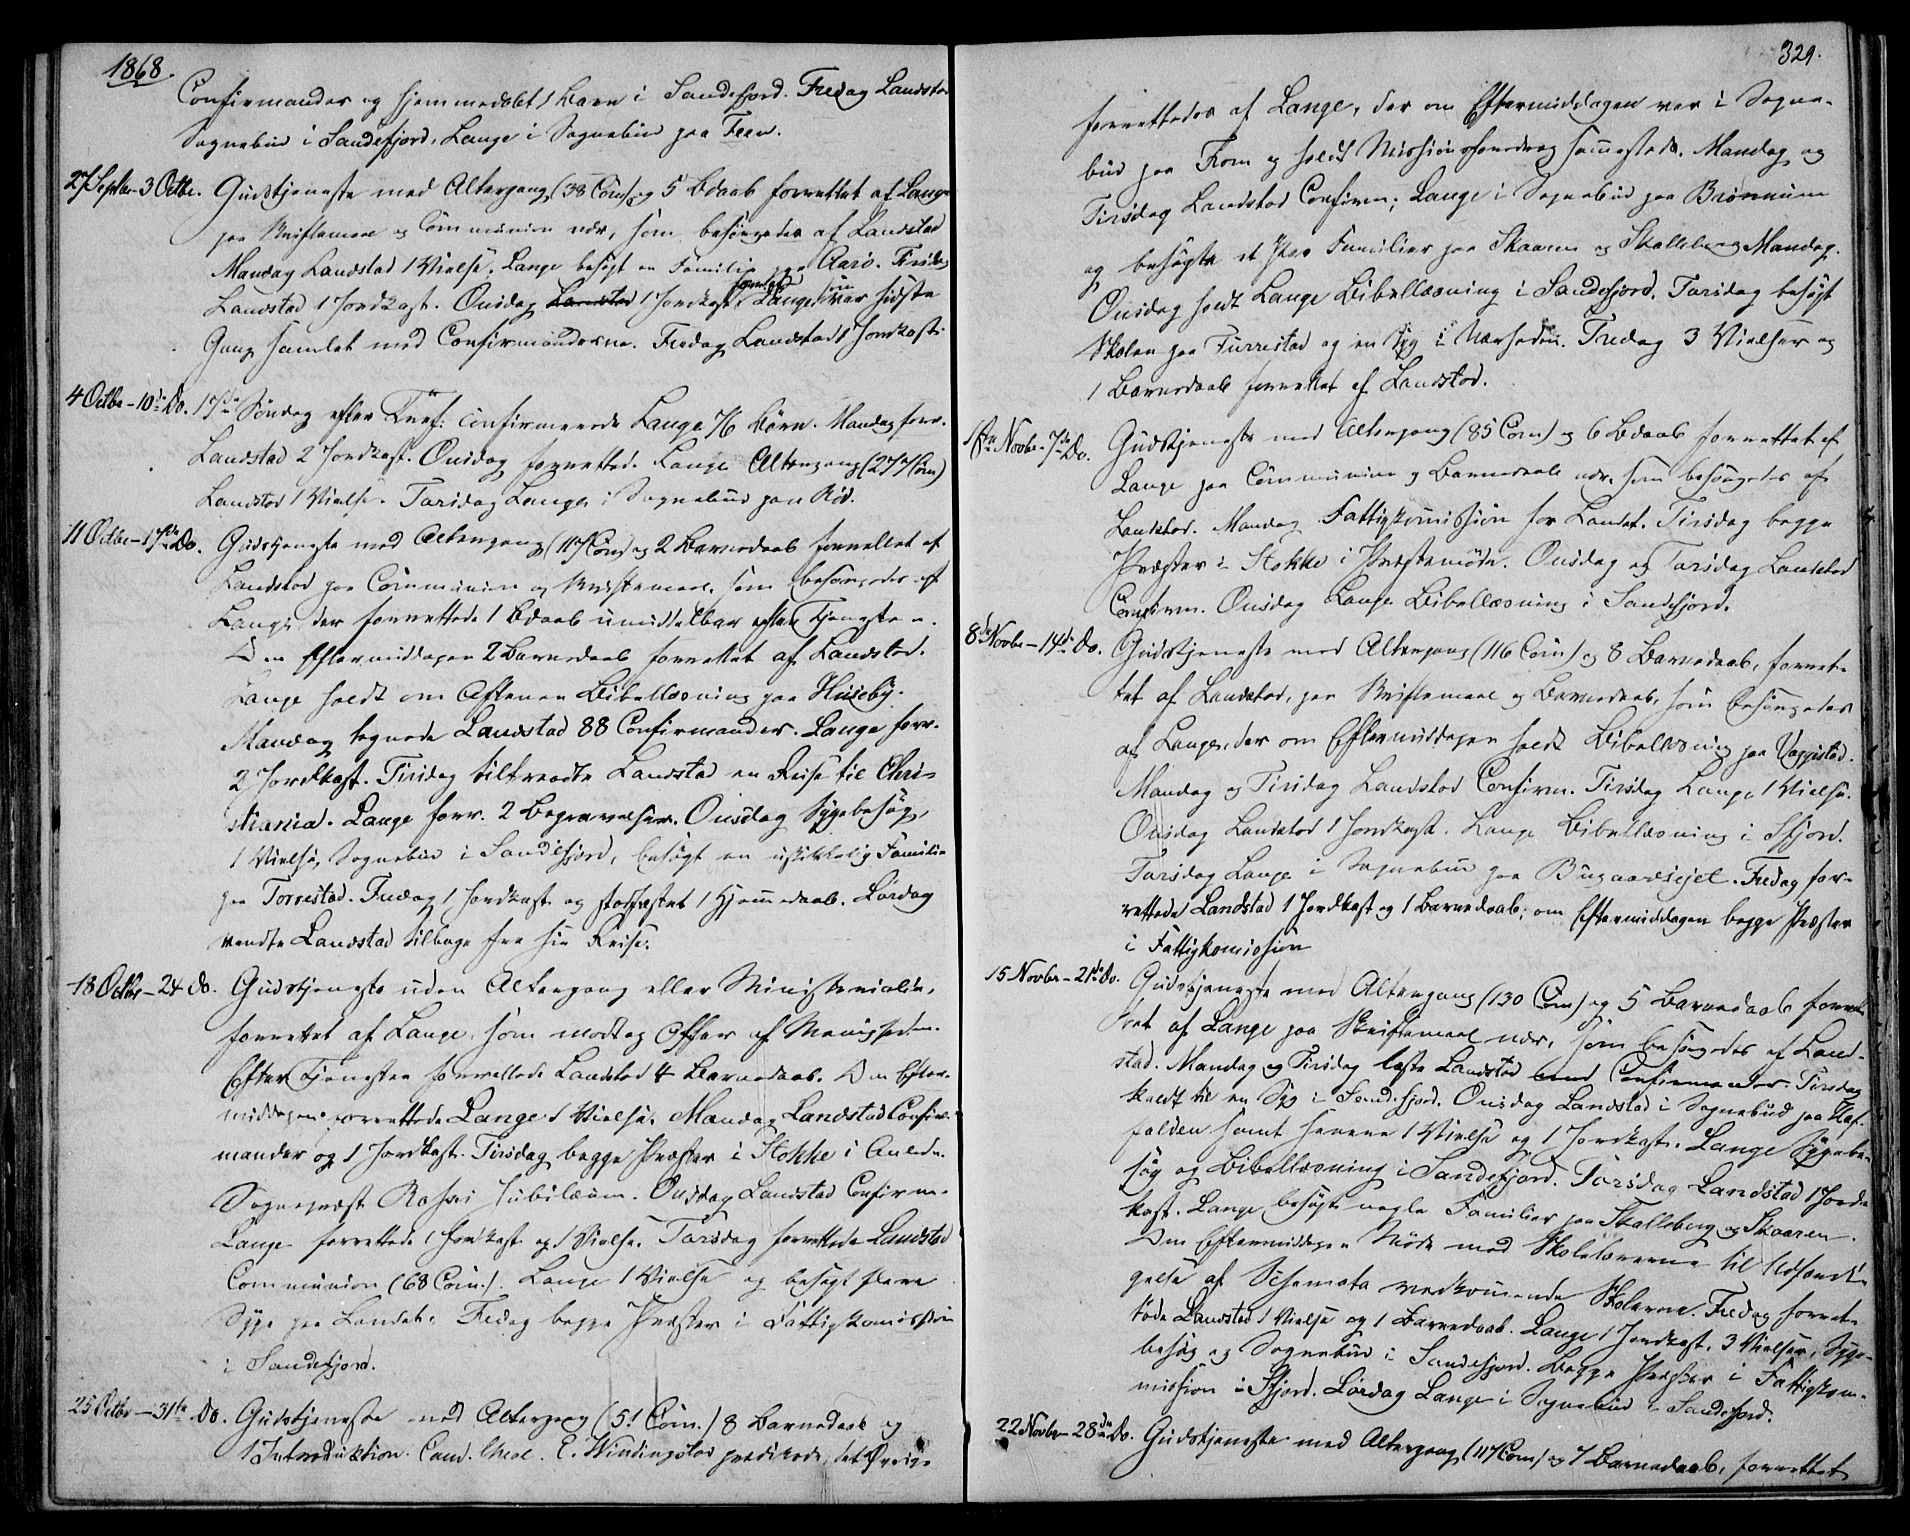 1868.
Confirmander og hjemmedøbt 1 Barn i Sandefjord. Fredag Landstad
Sognebud i Sandefjord, Lange i Sognebud paa Feen.
27 Septbr - 3 Octbr. Gudstjeneste med Altergang (38 Com) og 5 Bdaab forrettet af Lange
paa Skriftemaal og Communion nær, som besørgedes af Landstad
Mandag Landstad 1 Vielse. Lange besøgt en Familie paa Aarø. Tirsdag
Landstad 1 Jordkast. Onsdag Landstad 1 Jordkast forrettet Lange som var sidste
Gang samlet med Confirmanderne. Fredag Landstad 1 Jordkast.
4 Octbr - 10de Do. 17de Søndag efter Tref: confirmerede Lange 76 Børn. Mandag forr.
Landstad 2 Jordkast. Onsdag forrettede Lange Altergang (277 Com)
Landstad 1 Vielse. Torsdag Lange i Sognebud paa Rød.
11 Octbr - 17de Do. Gudstjeneste med Altergang (117 Com) og 2 Barnedaab forrettet af
Landstad paa Communion og Skriftemaal, som besørgedes af
Lange, der forrettede 1 Bdaab umiddelbar efter Tjenesten.
Om Eftermiddagen 2 Barnedaab forrettet af Landstad.
Lange holdt om Aftenen Bibellæsning paa Huseby.
Mandag tegnede Landstad 88 Confirmander. Lange forr.
2 Jordkast. Tirsdag tiltraadte Landstad en Reise til Chri-
stiania. Lange forr. 2 Begravelser. Onsdag Sygebesøg,
1 Vielse, Sognebud i Sandefjord, besøgt en uskikkelig Familie
paa Torrestad. Fredag 1 Jordkast og stadfæstet 1 Hjemmedaab. Lørdag
vendte Landstad tilbage fra sin Reise.
18 Octbr - 24 Do. Gudstjeneste uden Altergang eller Ministerialia,
forrettet af Lange, som modtog Offer af Menigheden.
Efter Tjenesten forrettede Landstad 4 Barnedaab. Om Efter-
middagen forrettede Lange 1 Vielse. Mandag Landstad Confir-
mander og 1 Jordkast. Tirsdag begge Præster i Stokke i Anledn.
Sognepræst Rosses Jubilæum. Onsdag Landstad Confirm.
Lange forrettede 1 Jordkast og 1 Vielse. Torsdag forrettede Landstad
Communion (68 Com.). Lange 1 Vielse og besøgt flere
Syge paa Landet. Fredag begge Præster i Fattigkomission
i Sandefjord.
25 Octbr - 31te Do. Gudstjeneste med Altergang (51 Com.) 8 Barnedaab og
1 Introduktion. Cand. theol. E. Windingstad prædikede; det Øvrige
329.
forrettedes af Lange, der om Eftermiddagen var i Sogne-
bud paa From og holdt Missionsforedrag sammesteds. Mandag og
Tirsdag Landstad Confirm; Lange i Sognebud paa Brønnum
og besøgte et Par Familier paa Skaaren og Skalleberg Mandag.
Onsdag holdt Lange Bibellæsning i Sandefjord. Torsdag besøgt
Skolen paa Furrestad og en Syg i Nærheden. Fredag 3 Vielser og
1 Barnedaab forrettet af Landstad.
1ste Novbr - 7de Do. Gudstjeneste med Altergang (85 Com) og 6 Bdaab forrettet af
Lange paa Communion og Barnedaab nær, som besørgedes af
Landstad. Mandag Fattigkomission for Landet. Tirsdag begge
Præster i Stokke i Præstemøde. Onsdag og Torsdag Landstad
Confirm. Onsdag Lange Bibellæsning i Sandefjord.
8de Novbr - 14de Do. Gudstjeneste med Altergang (116 Com) og 8 Barnedaab, forret-
tet af Landstad, paa Skriftemaal og Barnedaab, som besørgedes
af Lange, der om Eftermiddagen holdt Bibellæsning paa Veggistad.
Mandag og Tirsdag Landstad Confirm. Tirsdag Lange 1 Vielse.
Onsdag Landstad 1 Jordkast. Lange Bibellæsning i Sfjord.
Torsdag Lange i Sognebud paa Bugaardsejet. Fredag for-
rettede Landstad 1 Jordkast og 1 Barnedaab; om Eftermiddagen begge Præster
i Fattigkomission
15 Novbr - 21de Do. Gudstjeneste med Altergang (130 Com) og 5 Barnedaab forret-
tet af Lange paa Skriftemaal nær, som besørgedes af Land-
stad. Mandag og Tirsdag læste Landstad med Confirmander. Tirsdag
kaldt til en Syg i Sandefjord. Onsdag Landstad i Sognebud paa
falden samt senere 1 Vielse og 1 Jordkast. Lange Sygebe-
søg og Bibellæsning i Sandefjord. Torsdag Landstad 1 Jord-
kast. Lange besøgt nogle Familier paa Skalleberg og Skaaren.
Om Eftermiddagen Møde med Skolelærerne til Udfærdi-
gelse af Schemata vedkommende Skolerne. Fredag forret-
tede Landstad 1 Vielse og 1 Barnedaab. Lange 1 Jordkast, 3 Vielser, Syge-
besøg og Sognebud i Sandefjord. Begge Præster i Fattigkom-
mission i Sfjord. Lørdag Lange i Sognebud i Sandefjord.
22 Novbr - 28de Do. Gudstjeneste med Altergang (117 Com) og 7 Barnedaab, forrettet